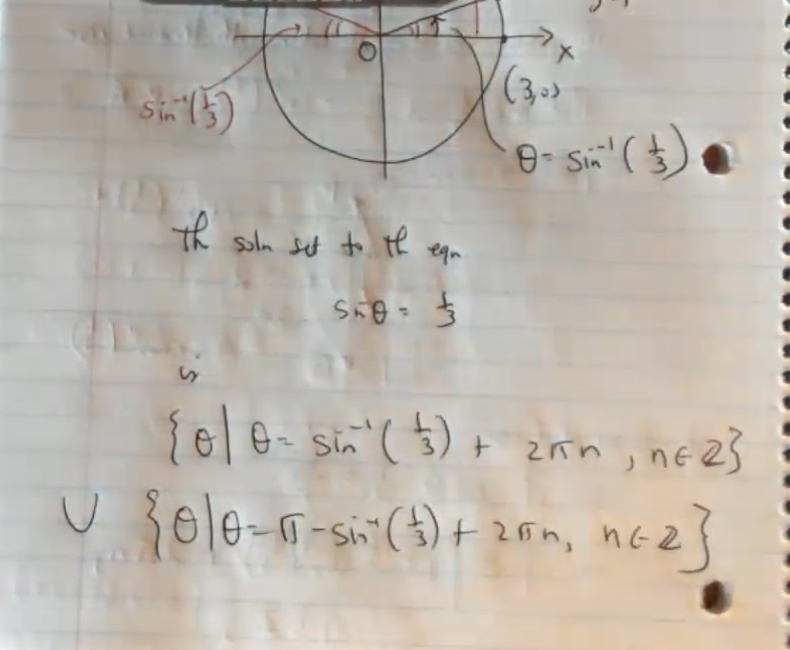 O
x
sin⁻¹(1/3)
(3,0)
θ = sin⁻¹(1/3)
th soln set to th eqn
sinθ = 1/3
is
{θ | θ = sin⁻¹(1/3) + 2πn, n∈Z}
∪ {θ | θ = π - sin⁻¹(1/3) + 2πn, n∈Z}